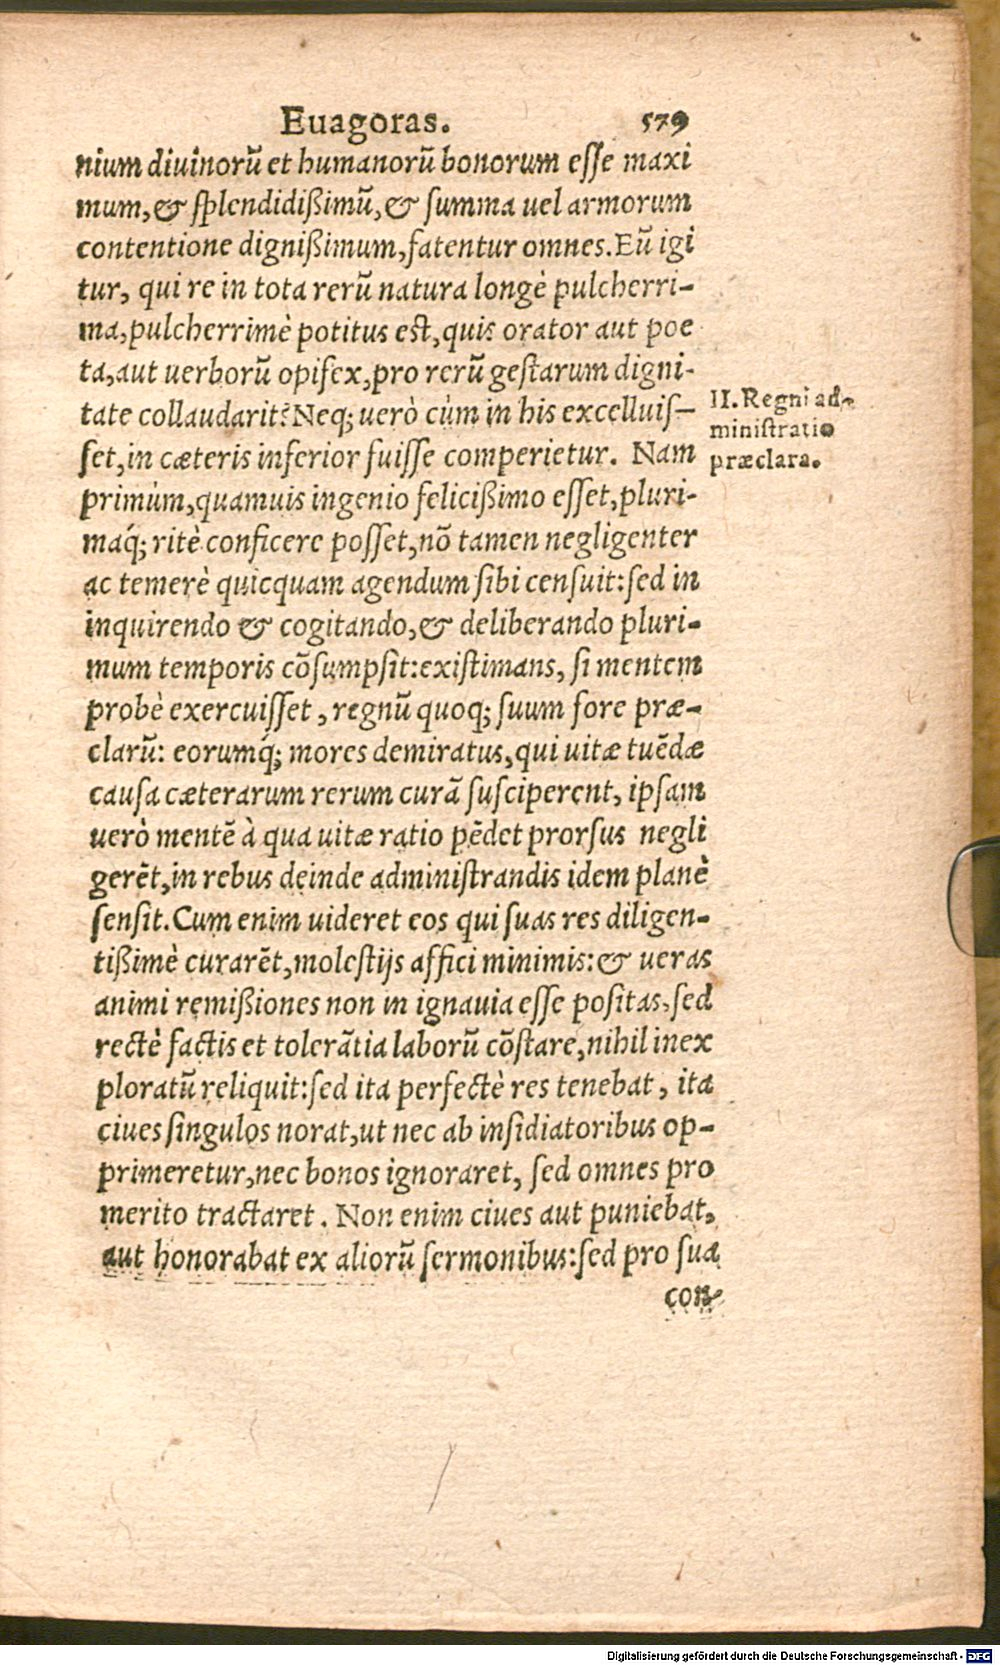 Euagoras. 579
nium diuinorũ et humanorũ bonorum esse maxi
mum, & splendidißimũ, & summa uel armorum
contentione dignißimum, fatentur omnes. Eũ igi
tur, qui re in tota rerũ natura longè pulcherri-
ma, pulcherrimè potitus est, quis orator aut poe
ta, aut uerborũ opifex, pro rerũ gestarum digni-
tate collaudarit? Neq; uerò cùm in his excelluis-
set, in cæteris inferior fuisse comperietur. Nam
primùm, quamuis ingenio felicißimo esset, pluri-
maq́; ritè conficere posset, nõ tamen negligenter
ac temerè quicquam agendum sibi censuit: sed in
inquirendo & cogitando, & deliberando pluri-
mum temporis cõsumpsit: existimans, si mentem
probè exercuisset, regnũ quoq; suum fore præ-
clarũ: eorumq́; mores demiratus, qui uitæ tuẽdæ
causa cæterarum rerum curã susciperent, ipsam
uerò mentẽ à qua uitæ ratio pẽdet prorsus negli
gerẽt, in rebus deinde administrandis idem planè
sensit. Cum enim uideret eos qui suas res diligen-
tißimè curarẽt, molestijs affici minimis: & ueras
animi remißiones non in ignauia esse positas, sed
rectè factis et tolerãtia laborũ cõstare, nihil inex
ploratũ reliquit: sed ita perfectè res tenebat, ita
ciues singulos norat, ut nec ab insidiatoribus op-
primeretur, nec bonos ignoraret, sed omnes pro
merito tractaret. Non enim ciues aut puniebat,
aut honorabat ex aliorũ sermonibus: sed pro sua
con-
II. Regni ad-
ministratio
præclara.
Digitalisierung gefördert durch die Deutsche Forschungsgemeinschaft - DFG